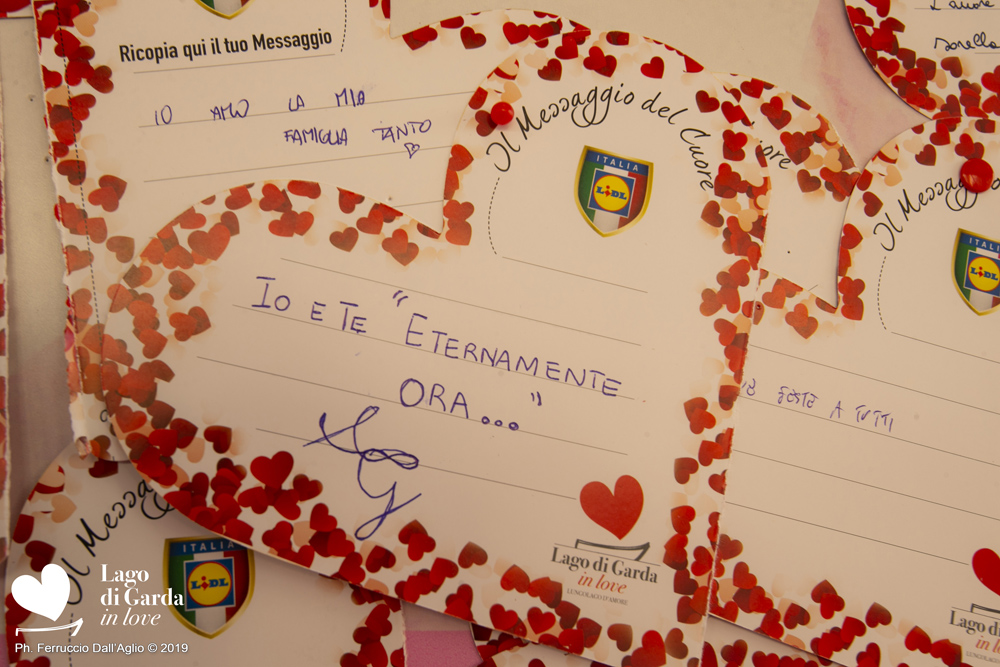 Ricopia qui il tuo Messaggio
IO AMO LA MIA
FAMIGLIA TANTO
Il Messaggio del Cuore
ITALIA
LIDL
IO E TE "ETERNAMENTE
ORA..."
Lago di Garda
in love
LUNGOLAGO D'AMORE
ore
sorella
Il Messaggio
LIDL
FESTE A TUTTI
Lago di
in
Il Messa
ITALIA
LIDL
Lago
di Garda
in love
Ph. Ferruccio Dall'Aglio © 2019